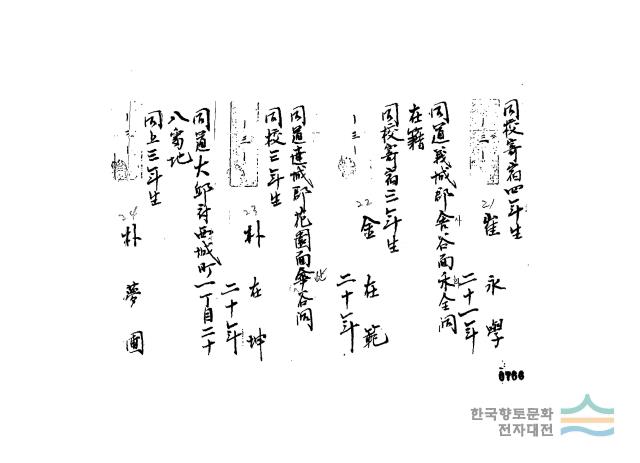 同校寄宿四年生
21 崔永學
二十一年
同道義城郡舍谷面
在籍
同校寄宿三年生
22 金在範
二十年
同道達城郡花園面
同校三年生
23 朴在坤
二十年
同道大邱府西城町一丁目二十
八番地
同上三年生
24 朴夢
0766
한국향토문화
전자대전